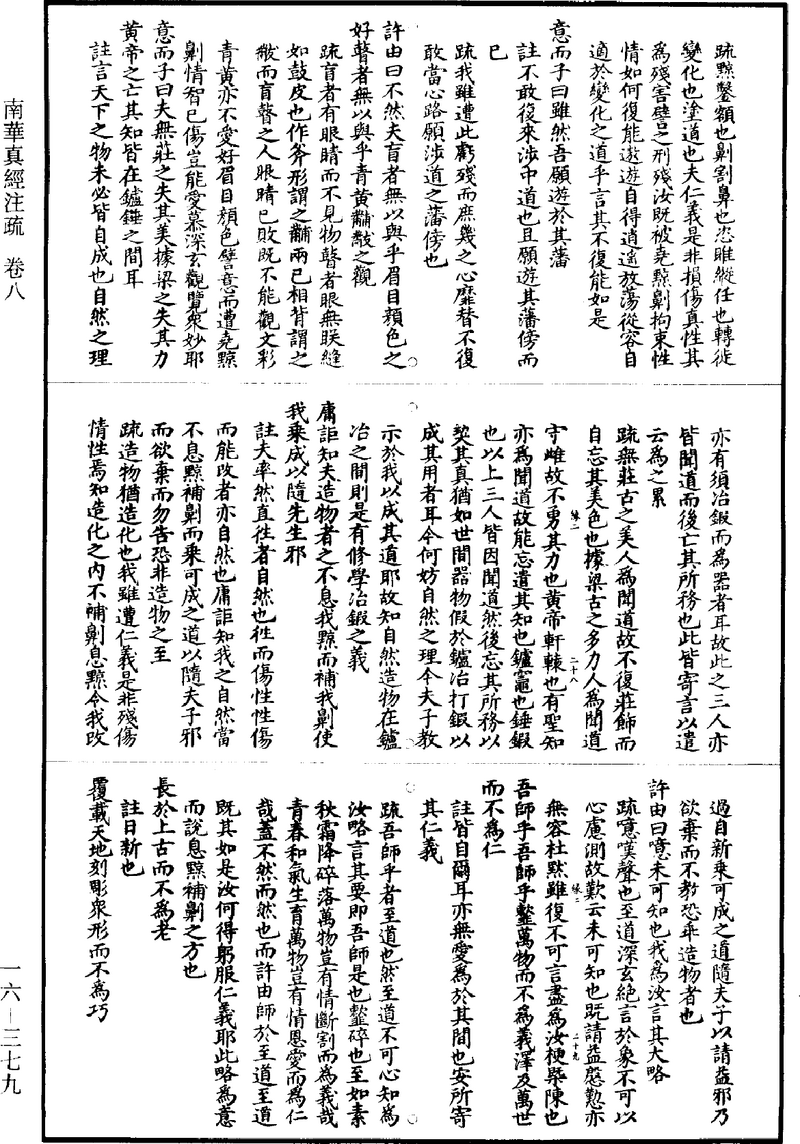 疏黥鑿額也劓割鼻也恣睢縱任也轉徙
變化也塗道也夫仁義是非損傷真性其
為殘害譬之刑殘汝既被堯黥劓拘束性
情如何復能遨遊自得逍遙放蕩從容自
適於變化之道乎言其不復能如是
意而子曰雖然吾願遊於其藩
註不敢復來涉中道也且願遊其藩傍而
已
疏我雖遭此虧殘而庶幾之心靡替不復
敢當心路願涉道之藩傍也
許由曰不然夫盲者無以與乎眉目顏色之
好瞽者無以與乎青黃黼黻之觀
疏盲者有眼睛而不見物瞽者眼無眹縫
如鼓皮也作斧形謂之黼兩己相背謂之
黻而盲瞽之人眼睛已敗既不能觀文彩
青黃亦不愛好眉目顏色譬意而遭堯黥
劓情智已傷豈能愛慕深玄觀覽衆妙耶
意而子曰夫無莊之失其美據梁之失其力
黃帝之亡其知皆在鑪錘之間耳
註言天下之物未必皆自成也自然之理
亦有須冶鍛而為器者耳故此之三人亦
皆聞道而後亡其所務也此皆寄言以遣
云為之累
疏無莊古之美人為聞道故不復莊飾而
自忘其美色也據梁古之多力人為聞道
守雌故不勇其力也黃帝軒轅也有聖知
亦為聞道故能忘遺其知也鑪竈也錘鍛
也以上三人皆因聞道然後忘其所務以
契其真猶如世間器物假於鑪冶打鍛以
成其用者耳今何妨自然之理令夫子教
示於我以成其道耶故知自然造物在鑪
冶之間則是有修學冶鍛之義
庸詎知夫造物者之不息我黥而補我劓使
我乘成以隨先生邪
註夫率然直往者自然也往而傷性性傷
而能改者亦自然也庸詎知我之自然當
不息黥補劓而乘可成之道以隨夫子邪
而欲棄而勿告恐非造物之至
疏造物猶造化也我雖遭仁義是非殘傷
情性焉知造化之內不補劓息黥令我改
過自新乘可成之道隨夫子以請益邪乃
欲棄而不教恐乖造物者也
許由曰噫未可知也我為汝言其大略
疏噫嘆聲也至道深玄絕言於象不可以
心慮測故歎云未可知也既請益慇懃亦
無容杜默雖復不可言盡為汝梗槩陳也
吾師乎吾師乎䪠萬物而不為義澤及萬世
而不為仁
註皆自爾耳亦無愛為於其間也安所寄
其仁義
疏吾師乎者至道也然至道不可心知為
汝略言其要即吾師是也䪠碎也至如素
秋霜降碎落萬物豈有情斷割而為義哉
青春和氣生育萬物豈有情恩愛而為仁
哉蓋不然而然也而許由師於至道至道
既其如是汝何得躬服仁義耶此略為意
而說息黥補劓之方也
長於上古而不為老
註日新也
覆載天地刻彫衆形而不為巧
南華真經注疏 卷八
一六—三七九
緣一
二十八
緣二
二十九